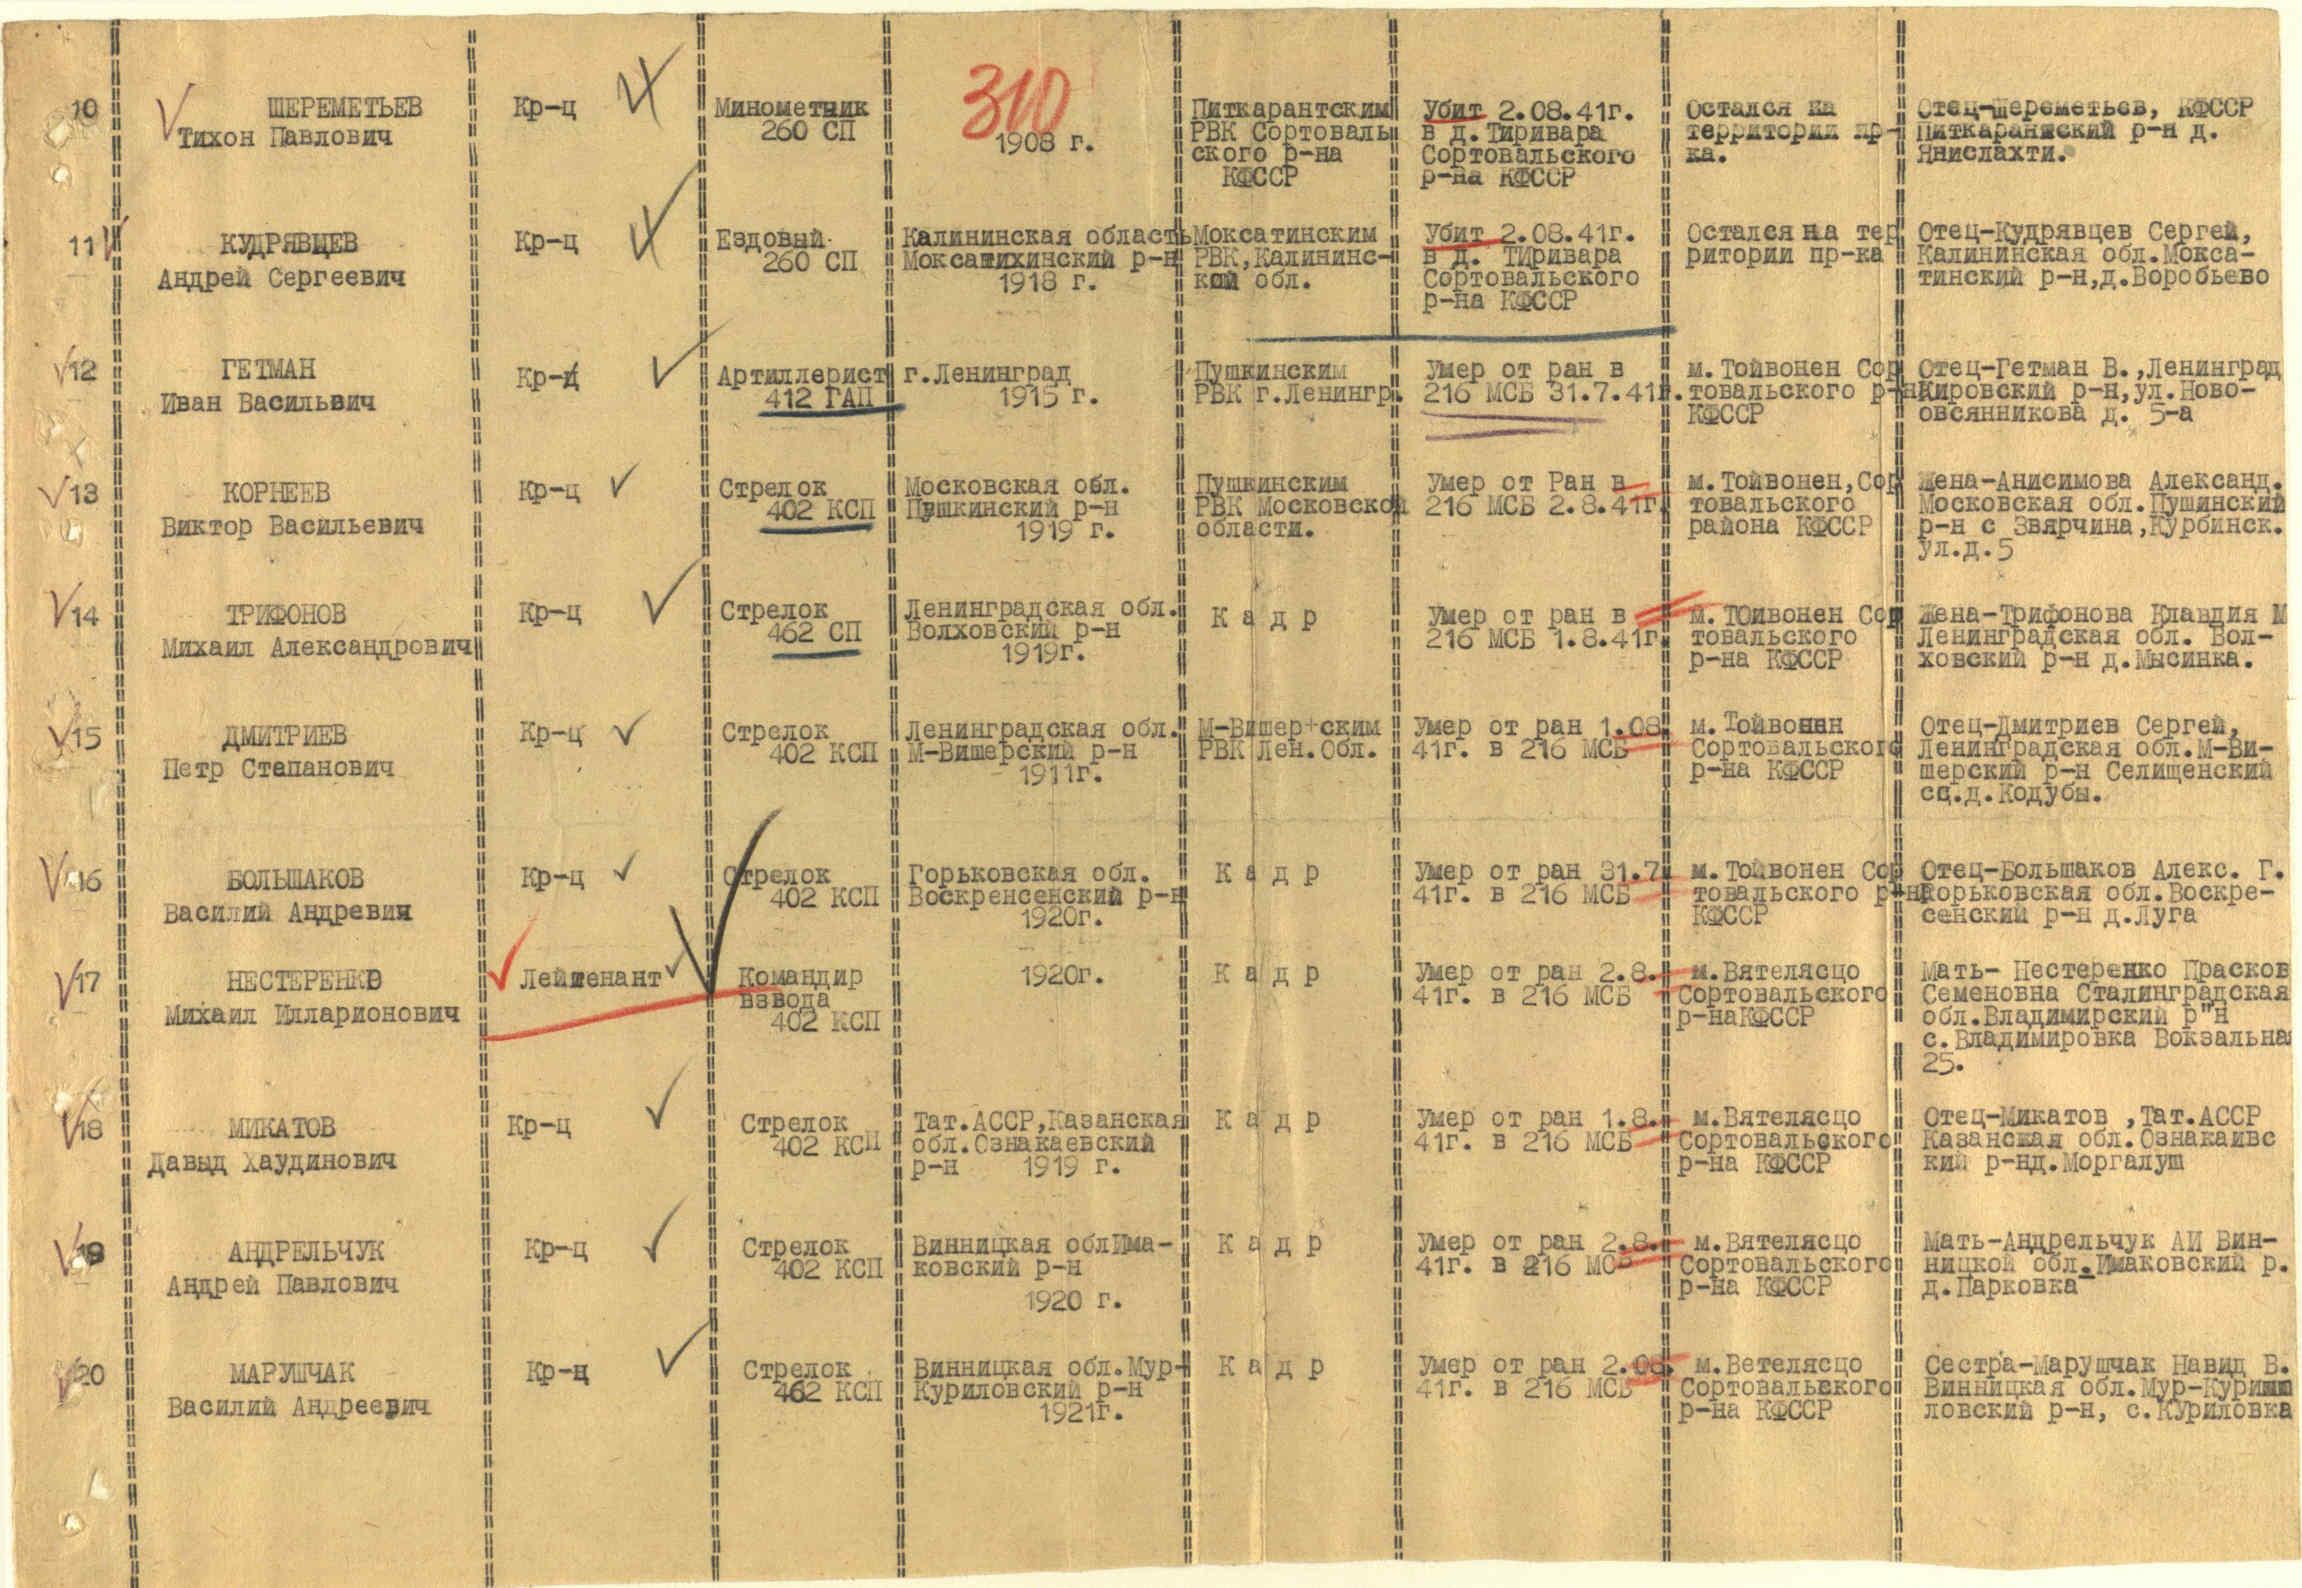 310
10
ШЕРЕМЕТЬЕВ
Тихон Павлович
Кр-ц
Минометчик
260 СП
1908 г.
Питкарантским
РВК Сортоваль
ского р-на
КФССР
Убит 2.08.41г.
в д.Тиривара
Сортовальского
р-на КФССР
Остался на
территории пр-
ка.
Отец-Шереметьев, КФССР
Питкаранский р-н д.
Янислахти.
11
КУДРЯВЦЕВ
Андрей Сергеевич
Кр-ц
Ездовый
260 СП
Калининская область
Моксатихинский р-н
1918 г.
Моксатинским
РВК,Калининс-
кой обл.
Убит 2.08.41г.
в д. Тиривара
Сортовальского
р-на КФССР
Остался на тер
ритории пр-ка
Отец-Кудрявцев Сергей,
Калининская обл.Мокса-
тинский р-н,д.Воробьево
12
ГЕТМАН
Иван Васильвич
Кр-ц
Артиллерист
412 ГАП
г.Ленинград
1915 г.
Пушкинским
РВК г.Ленингр.
Умер от ран в
216 МСБ 31.7.41г.
м.Тойвонен Сор
товальского р-на
КФССР
Отец-Гетман В.,Ленинград
Кировский р-н,ул.Ново-
овсянникова д. 5-а
13
КОРНЕЕВ
Виктор Васильевич
Кр-ц
Стрелок
402 КСП
Московская обл.
Пушкинский р-н
1919 г.
Пушкинским
РВК Московской
области.
Умер от Ран в
216 МСБ 2.8.41г.
м.Тойвонен,Сор
товальского
района КФССР
Жена-Анисимова Александ.
Московская обл.Пушинский
р-н с Звярчина,Курбинск.
ул.д.5
14
ТРИФОНОВ
Михаил Александрович
Кр-ц
Стрелок
462 СП
Ленинградская обл.
Волховский р-н
1919г.
К а д р
Умер от ран в
216 МСБ 1.8.41г.
м.ТОйвонен Сор
товальского
р-на КФССР
Жена-Трифонова Клавдия М
Ленинградская обл. Вол-
ховский р-н д.Мысинка.
15
ДМИТРИЕВ
Петр Степанович
Кр-ц
Стрелок
402 КСП
Ленинградская обл.
М-Вишерский р-н
1911г.
М-Вишер+ским
РВК Лен.Обл.
Умер от ран 1.08.
41г. в 216 МСБ
м.Тойвонен
Сортовальского
р-на КФССР
Отец-Дмитриев Сергей,
Ленинградская обл.М-Ви-
шерский р-н Селищенский
сц.д.Кодубы.
16
БОЛЬШАКОВ
Василий Андревич
Кр-ц
Стрелок
402 КСП
Горьковская обл.
Воскренсенский р-н
1920г.
К а д р
Умер от ран 31.7.
41г. в 216 МСБ
м.Тойвонен Сор
товальского р-на
КФССР
Отец-Большаков Алекс. Г.
Горьковская обл.Воскре-
сенский р-н д.Луга
17
НЕСТЕРЕНКО
Михаил Илларионович
Лейтенант
Командир
взвода
402 КСП
1920г.
К а д р
Умер от ран 2.8.
41г. в 216 МСБ
м.Вятелясцо
Сортовальского
р-наКФССР
Мать- Нестеренко Прасков
Семеновна Сталинградская
обл.Владимирский р"н
с.Владимировка Вокзальна
25.
18
МИКАТОВ
Давыд Хаудинович
Кр-ц
Стрелок
402 КСП
Тат.АССР,Казанская
обл.Ознакаевский
р-н 1919 г.
К а д р
Умер от ран 1.8.
41г. в 216 МСБ
м.Вятелясцо
Сортовальского
р-на КФССР
Отец-Микатов ,Тат.АССР
Казанская обл.Ознакаивс
кий р-нд.Моргалуш
19
АНДРЕЛЬЧУК
Андрей Павлович
Кр-ц
Стрелок
402 КСП
Винницкая облИма-
ковский р-н
1920 г.
К а д р
Умер от ран 2.8.
41г. в 216 МСБ
м.Вятелясцо
Сортовальского
р-на КФССР
Мать-Андрельчук АИ Вин-
ницкой обл.Имаковский р.
д.Парковка
20
МАРУШЧАК
Василий Андреевич
Кр-ц
Стрелок
462 КСП
Винницкая обл.Мур-
Куриловский р-н
1921г.
К а д р
Умер от ран 2.08.
41г. в 216 МСБ
м.Ветелясцо
Сортовальского
р-на КФССР
Сестра-Марушчак Навид В.
Винницкая обл.Мур-Кури
ловский р-н, с.Куриловка